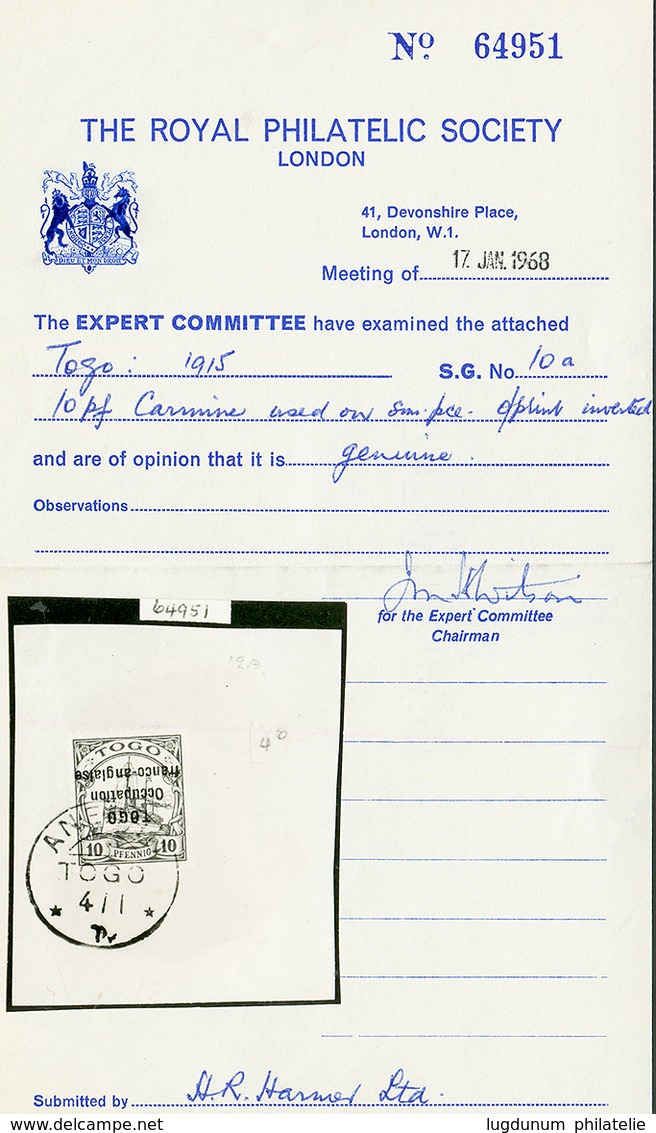 Nº 64951
THE ROYAL PHILATELIC SOCIETY
LONDON
DIEU ET MON DROIT
41, Devonshire Place,
London, W.1.
Meeting of 17 JAN. 1968
The EXPERT COMMITTEE have examined the attached
Togo: 1915 S.G. No. 10a
10 pf Carmine used on sm. pce. o/print inverted
and are of opinion that it is genuine.
Observations
for the Expert Committee
Chairman
64951
TOGO
franco-anglaise
Occupation
TOGO
10 PFENNIG 10
TOGO
4/1
Submitted by H.R. Harmer Ltd.
www.delcampe.net lugdunum philatelie